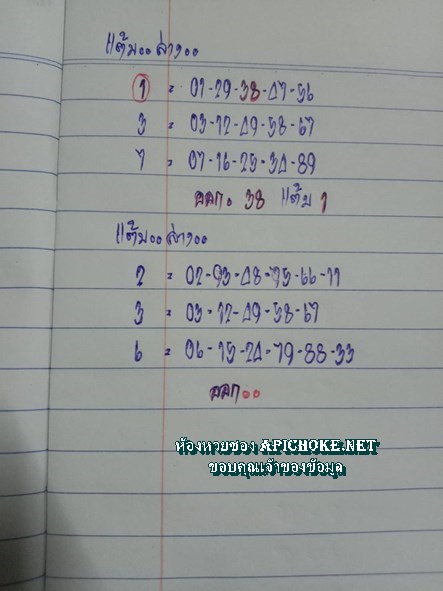 แต้ม.. ล่าง..
1 = 01-29-38-47-56
3 = 03-12-49-58-67
7 = 07-16-25-34-89
ออก. 38 แต้ม 1
แต้ม.. ล่าง..
2 = 02-93-48-75-66-11
3 = 03-12-49-58-67
6 = 06-15-24-79-88-33
ออก..
ห้องหวยซอง APICHOKE.NET
ขอบคุณเจ้าของข้อมูล